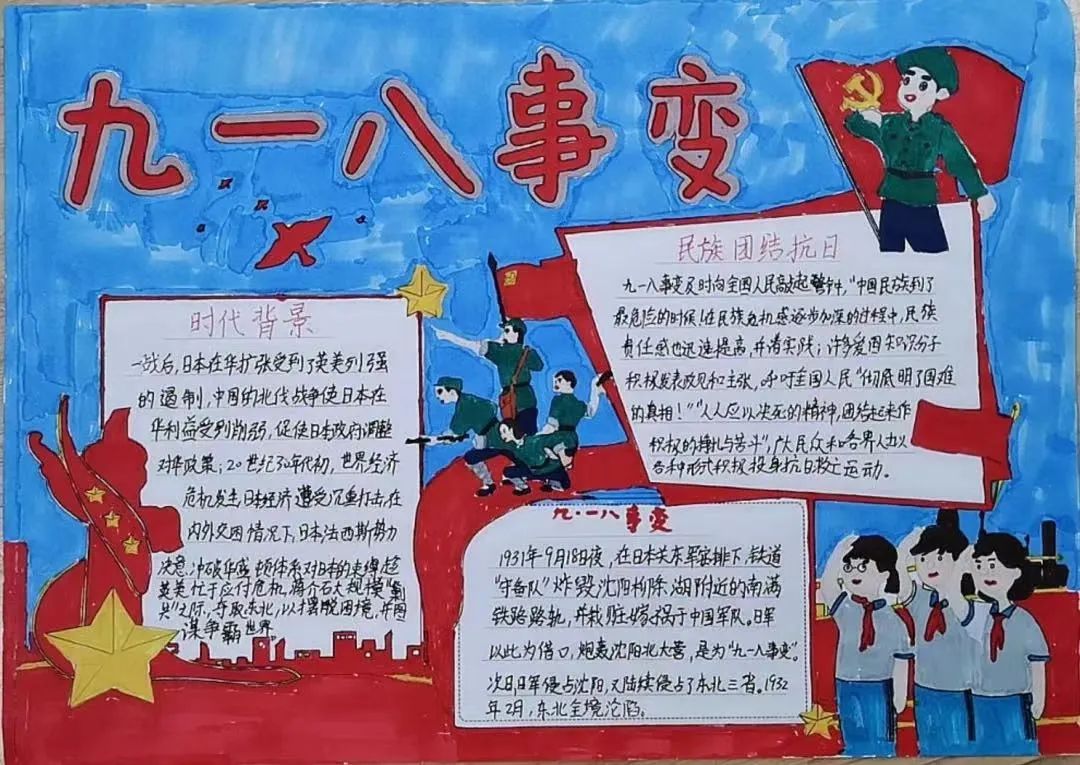 九一八事变
时代背景
一战后,日本在华扩张受到了英美列强
的遏制,中国的北伐战争使日本在
华利益受到削弱,促使日本政府调整
对华政策;20世纪30年代初,世界经济
危机发生日本经济遭受沉重打击,在
内外交困情况下,日本法西斯势力
决意冲破华盛顿体系对日本的束缚趁
英美忙于应付危机,蒋介石大规模"剿
共"之际,夺取东北,以摆脱困境,并图
谋争霸世界.
民族团结抗日
九一八事变及时向全国人民敲起警钟,"中国民族到了
最危险的时候!在民族危机感逐步加深的过程中,民族
责任感也迅速提高,并请实践;许多爱国知识分子
积极发表政见和主张,呼吁全国人民"彻底明了国难
的真相!""人人应以决死的精神,团结起来作
积极的挣扎与苦斗",广大民众和各界人士以
各种形式积极投身抗日救亡运动.
九·一八事变
1931年9月18日夜,在日本关东军安排下,铁道
"守备队"炸毁沈阳柳条湖附近的南满
铁路路轨,并栽赃嫁祸于中国军队。日军
以此为借口,炮轰沈阳北大营,是为"九一八事变"。
次日,日军侵占沈阳,又陆续侵占了东北三省。1932
年2月,东北全境沦陷。